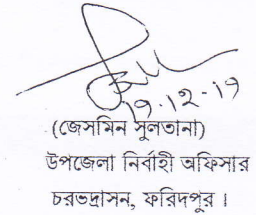 ১৭.১২.১৭
(জেসমিন সুলতানা)
উপজেলা নির্বাহী অফিসার
চরভদ্রাসন, ফরিদপুর।